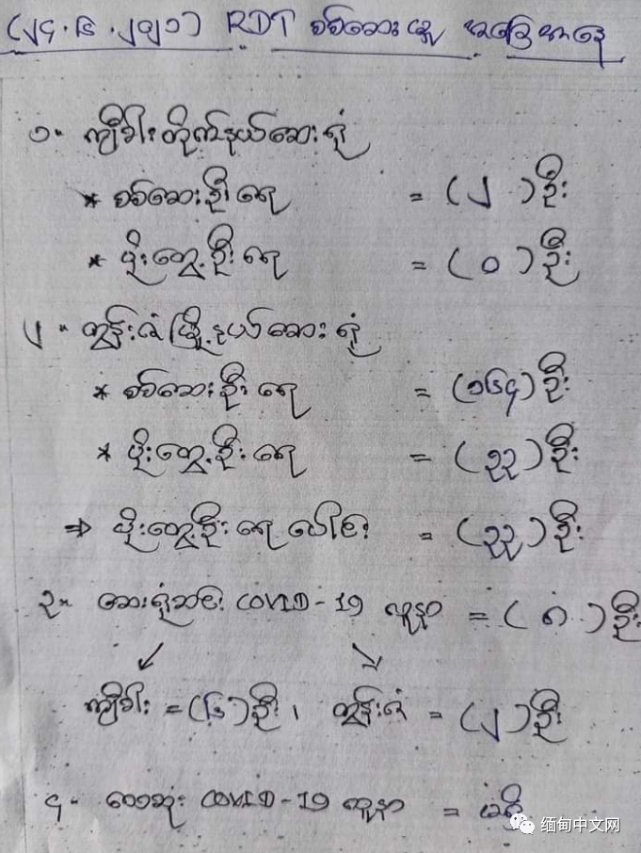 (၂၄.၆.၂၀၂၁) RDT စစ်ဆေးမှု အခြေအနေ
၁။ ကျီခါးတိုက်နယ်ဆေးရုံ
* စစ်ဆေးဦးရေ = (၂ ) ဦး
* ပိုးတွေ့ဦးရေ = (၀ ) ဦး
၂။ တွန်းဇံမြို့နယ်ဆေးရုံ
* စစ်ဆေးဦးရေ = (၁၆၄) ဦး
* ပိုးတွေ့ဦးရေ = (၃၃) ဦး
⇒ ပိုးတွေ့ဦးရေ ပေါင်း = (၃၃) ဦး
၃။ ဆေးရုံဆင်း COVID-19 လူနာ = (၈ ) ဦး
↙ ↘
ကျီခါး = (၆) ဦး၊ တွန်းဇံ = (၂) ဦး
၄။ သေဆုံး COVID-19 လူနာ = မရှိ
缅甸中文网